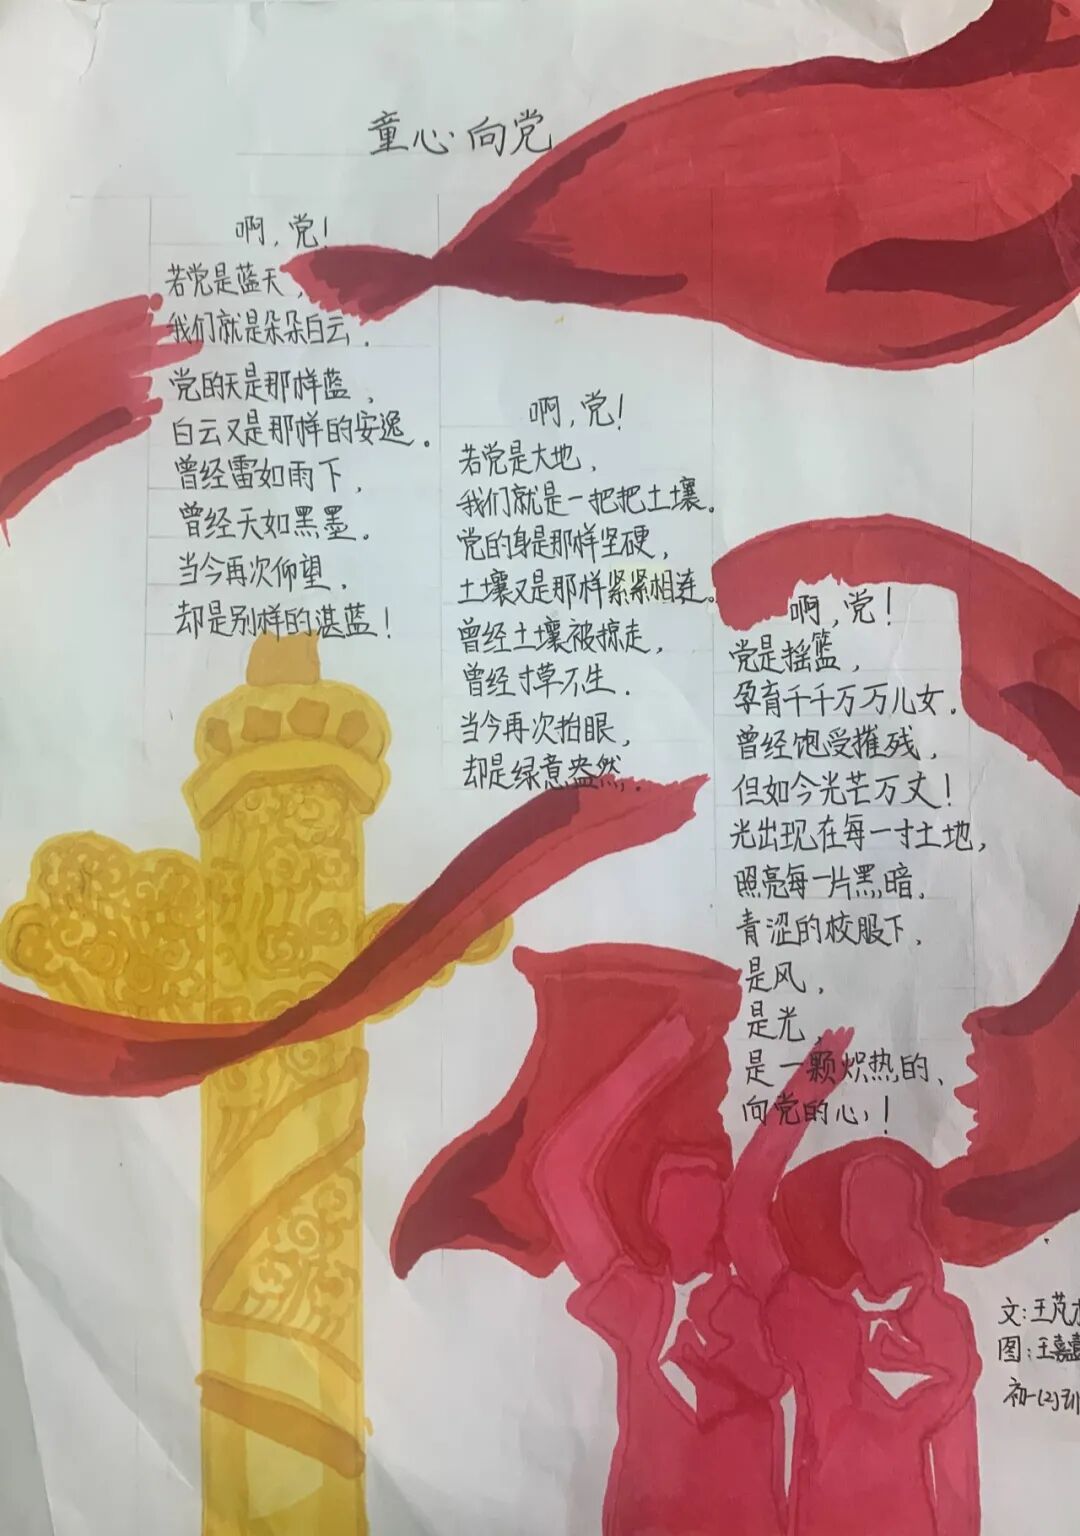 童心向党
啊,党!
若党是蓝天,
我们就是朵朵白云.
党的天是那样蓝,
白云又是那样的安逸.
曾经雷如雨下,
曾经天如黑墨.
当今再次仰望,
却是别样的湛蓝!
啊,党!
若党是大地,
我们就是一把把土壤.
党的身是那样坚硬,
土壤又是那样紧紧相连.
曾经土壤被掠走,
曾经寸草不生.
当今再次抬眼,
却是绿意盎然.
啊,党!
党是摇篮,
孕育千千万万儿女.
曾经饱受摧残,
但如今光芒万丈!
光出现在每一寸土地,
照亮每一片黑暗.
青涩的校服下,
是风,
是光,
是一颗炽热的、
向党的心!
文:王芃
图:王嘉
初一(2)